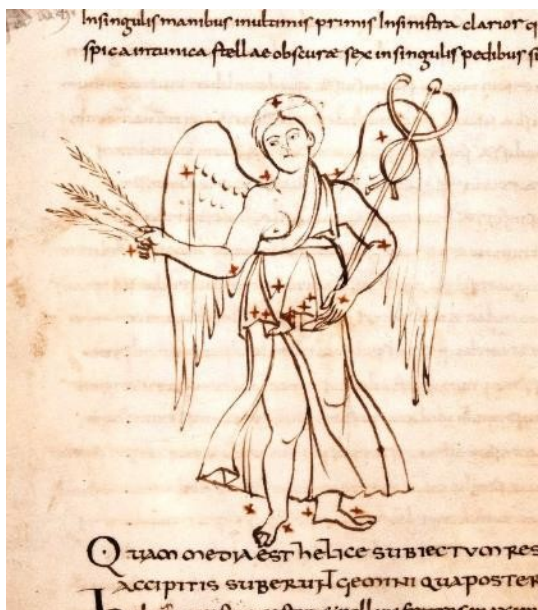 Insingulis manibus inultimis primis Insinistra clarior
spica intunica stellae obscuræ sex insingulis pedibus
QUAM MEDIA EST HELICE SUBIECTUM RES
ACCIPITIS SUBERUNT GEMINI QUA POSTER